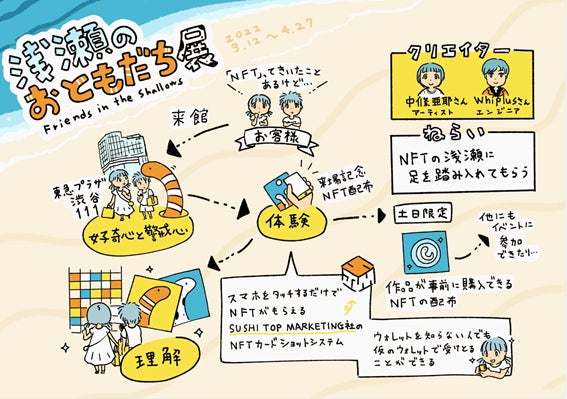 浅瀬の
おともだち展
Friends in the Shallows
2022
3.12〜4.27
「NFT」ってきいたこと
あるけど…
お客様
来館
東急プラザ
渋谷
111
好奇心と警戒心
体験
来場記念
NFT配布
理解
クリエイター
中條亜耶さん
アーティスト
Whiplusさん
エンジニア
ねらい
NFTの浅瀬に
足を踏み入れてもらう
土日限定
他にも
イベントに
参加
できたり…
作品が事前に購入できる
NFTの配布
スマホをタッチするだけで
NFTがもらえる
SUSHI TOP MARKETING社の
NFTカードショットシステム
ウォレットを知らない人でも
仮のウォレットで受けとる
ことができる